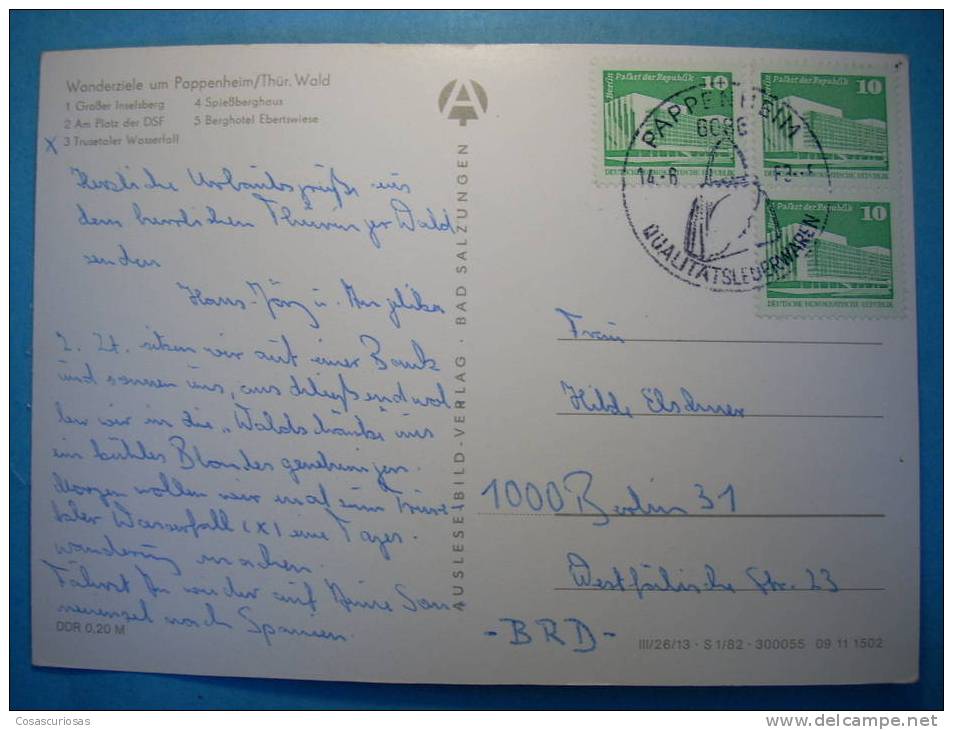 Wanderziele um Pappenheim/Thür. Wald
1 Großer Inselsberg 4 Spießberghaus
2 Am Platz der DSF 5 Berghotel Ebertswiese
x 3 Trusetaler Wasserfall
Herzliche Urlaubsgrüße aus
dem herrlichen Thüringer Wald
senden
Hans-Jörg u. Angelika
Z. Zt. sitzen wir auf einer Bank
und sonnen uns, anschließend wol
len wir in die "Waldschänke" uns
ein kühles Blondes genehmigen.
Morgen wollen wir mal zum Truse
taler Wasserfall (x) eine Tages-
wanderung machen.
Fährst Du wieder auf Deine Son
neninsel nach Spanien.
DDR 0,20 M
A
AUSLESE-BILD-VERLAG · BAD SALZUNGEN
Berlin Palast der Republik 10
DEUTSCHE DEMOKRATISCHE REPUBLIK
Berlin Palast der Republik 10
DEUTSCHE DEMOKRATISCHE REPUBLIK
Palast der Republik 10
DEUTSCHE DEMOKRATISCHE REPUBLIK
PAPPENHEIM
6086
14.-8
QUALITÄTSLEDERWAREN
Frau
Hilde Elschner
1000 Berlin 31
Westfälische Str. 23
- BRD -
III/26/13 · S 1/82 · 300055 09 11 1502
Cosascuriosas
www.delcampe.net